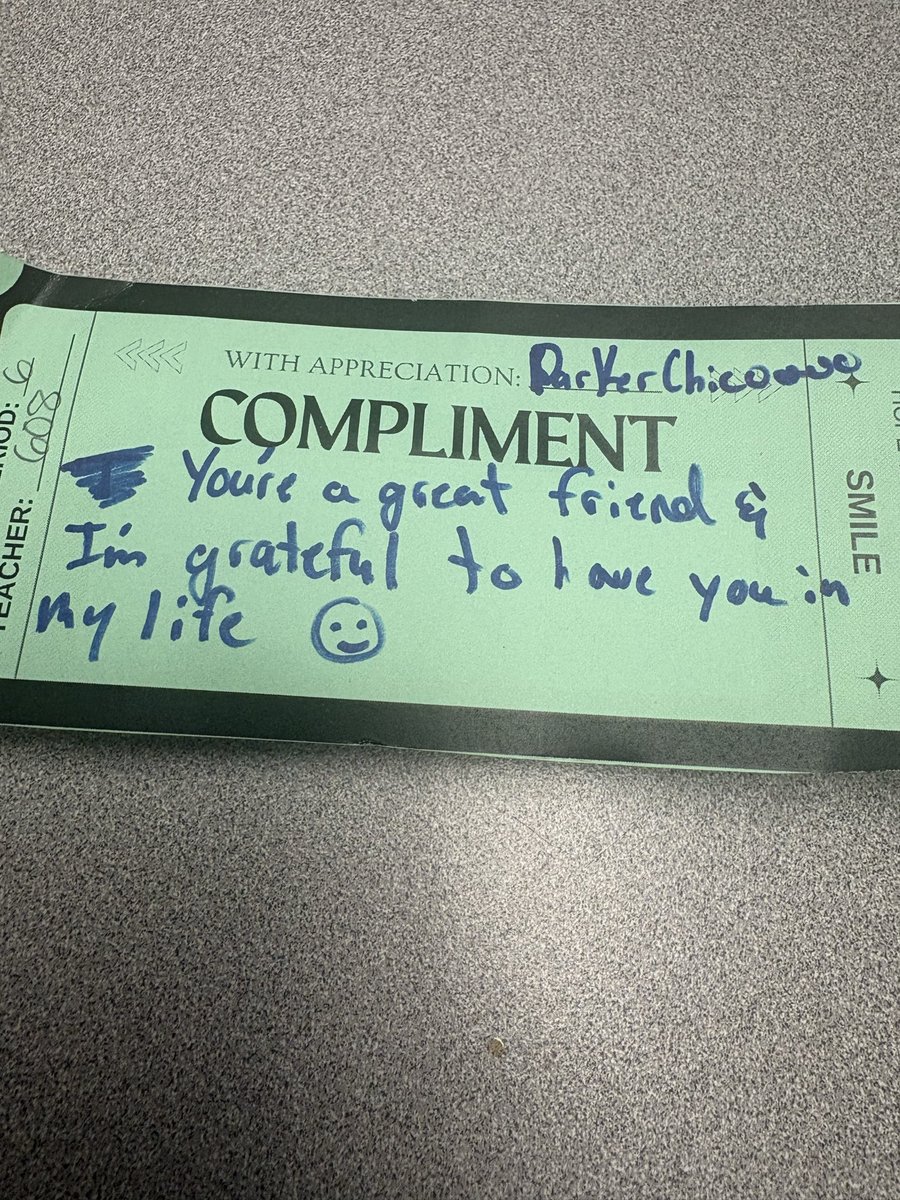 WITH APPRECIATION: Parker Chicoooo
COMPLIMENT
You're a great friend &
I'm grateful to have you in
my life
TEACHER: 608
6
SMILE